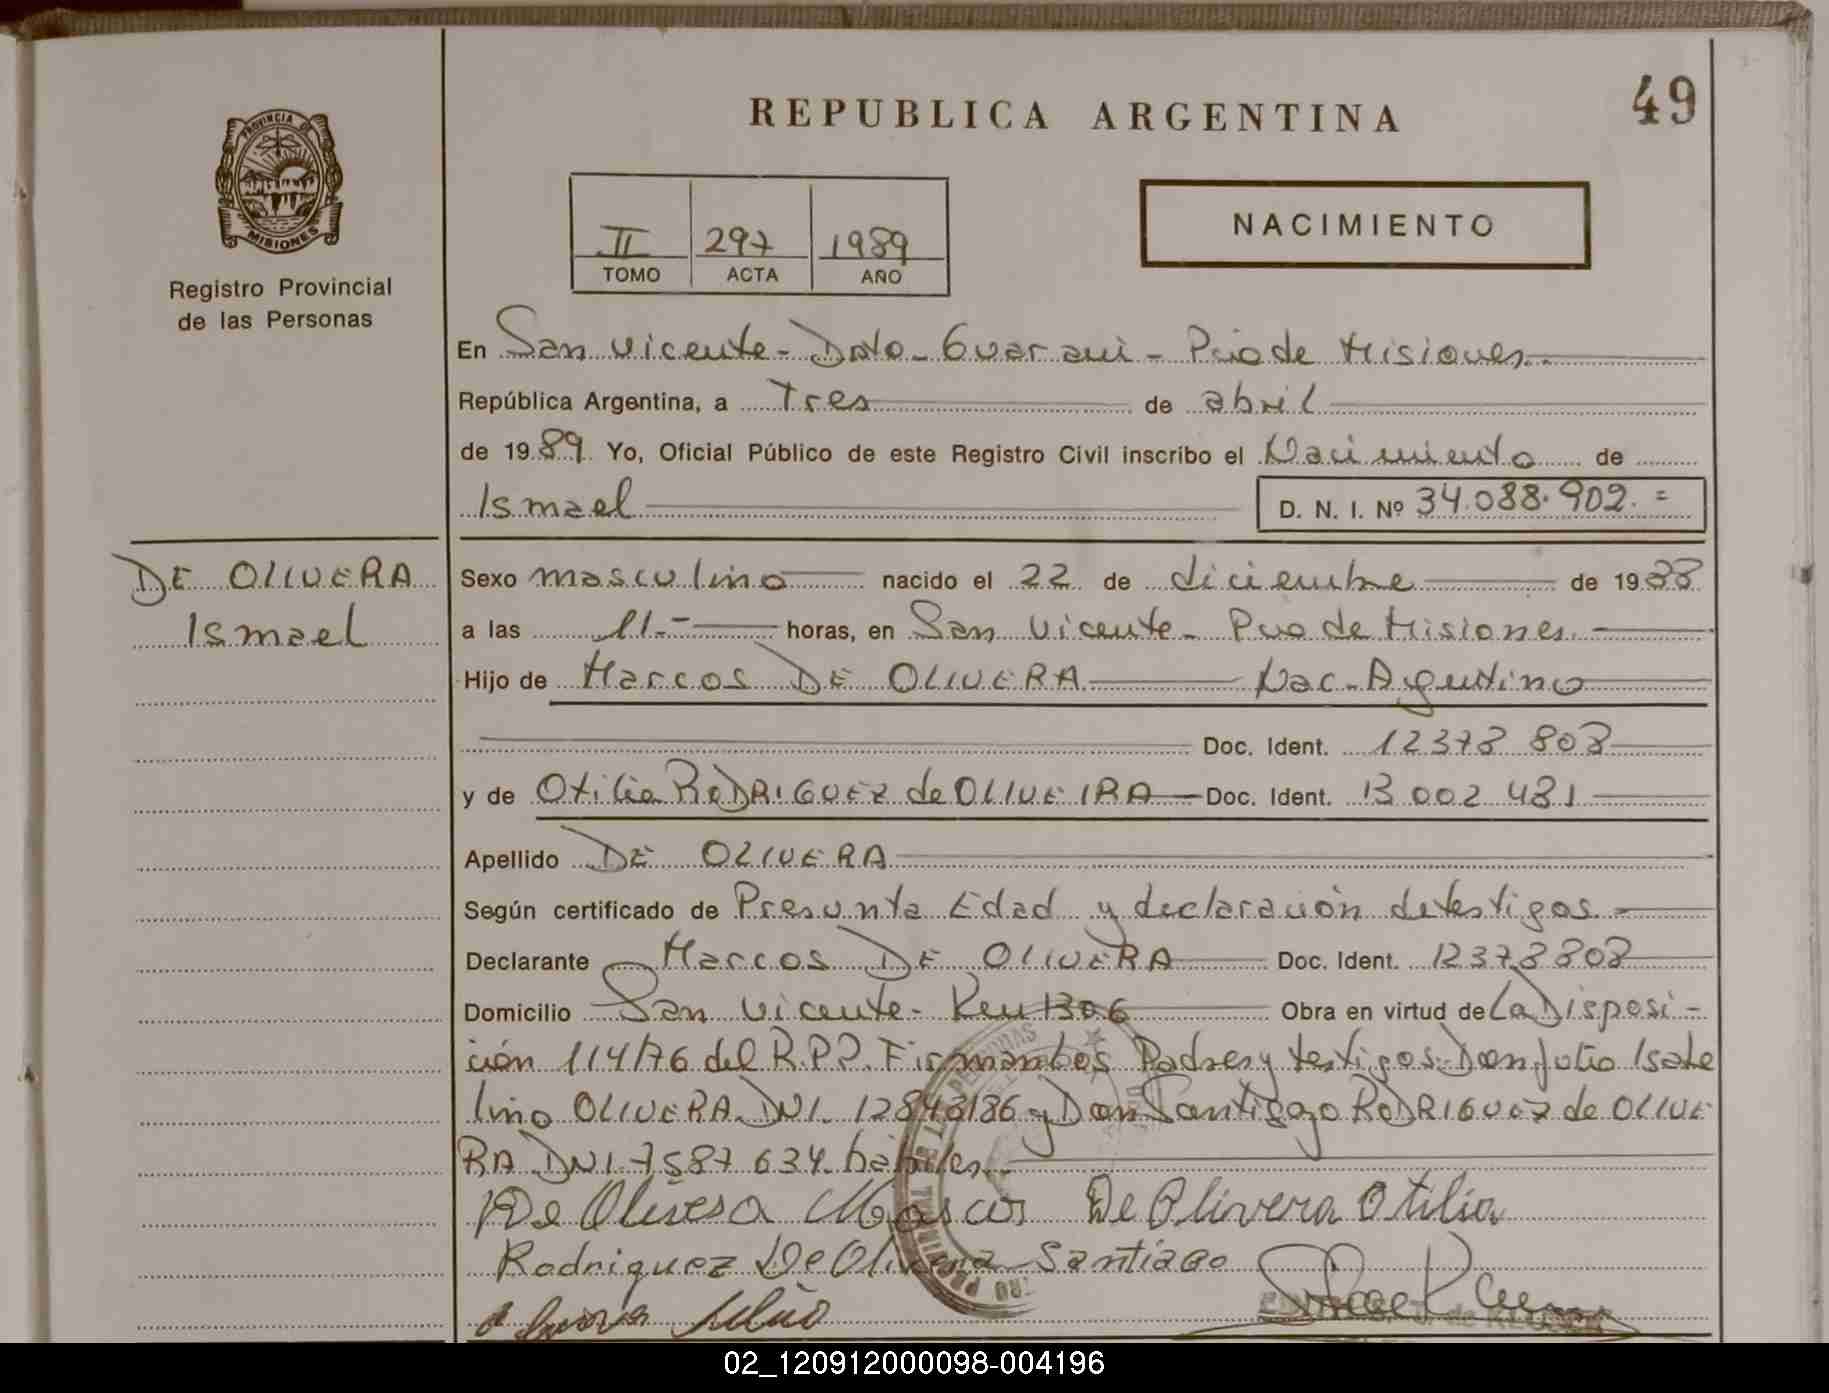 49
REPUBLICA ARGENTINA
PROVINCIA DE
MISIONES
Registro Provincial
de las Personas
II 297 1989
TOMO ACTA AÑO
NACIMIENTO
En San Vicente - Dpto - Guarani - Pcia de Misiones.
República Argentina, a Tres de abril
de 1989 Yo, Oficial Público de este Registro Civil inscribo el Nacimiento de
Ismael D. N. I. Nº 34.088.902. =
DE OLIVERA
Ismael
Sexo masculino nacido el 22 de diciembre de 1988
a las 11.- horas, en San Vicente - Pcia de Misiones.
Hijo de Marcos DE OLIVERA Nac - Argentino
Doc. Ident. 12378 808
y de Otilia RODRIGUEZ de OLIVEIRA Doc. Ident. 13 002 481
Apellido DE OLIVERA
Según certificado de Presunta Edad y declaración de testigos.
Declarante Marcos DE OLIVERA Doc. Ident. 12378808
Domicilio San Vicente - Km 1306 Obra en virtud de La Disposi-
ción 114/76 del R.P.P. Firman ambos Padres y testigos: Don Julio Isabe
lino OLIVERA DNI. 12848186 y Don Santiago RODRIGUEZ de OLIVE
RA DNI 7587 634. hábiles.
De Olivera Marcos De Olivera Otilia
Rodriguez De Olivera Santiago
02_120912000098-004196